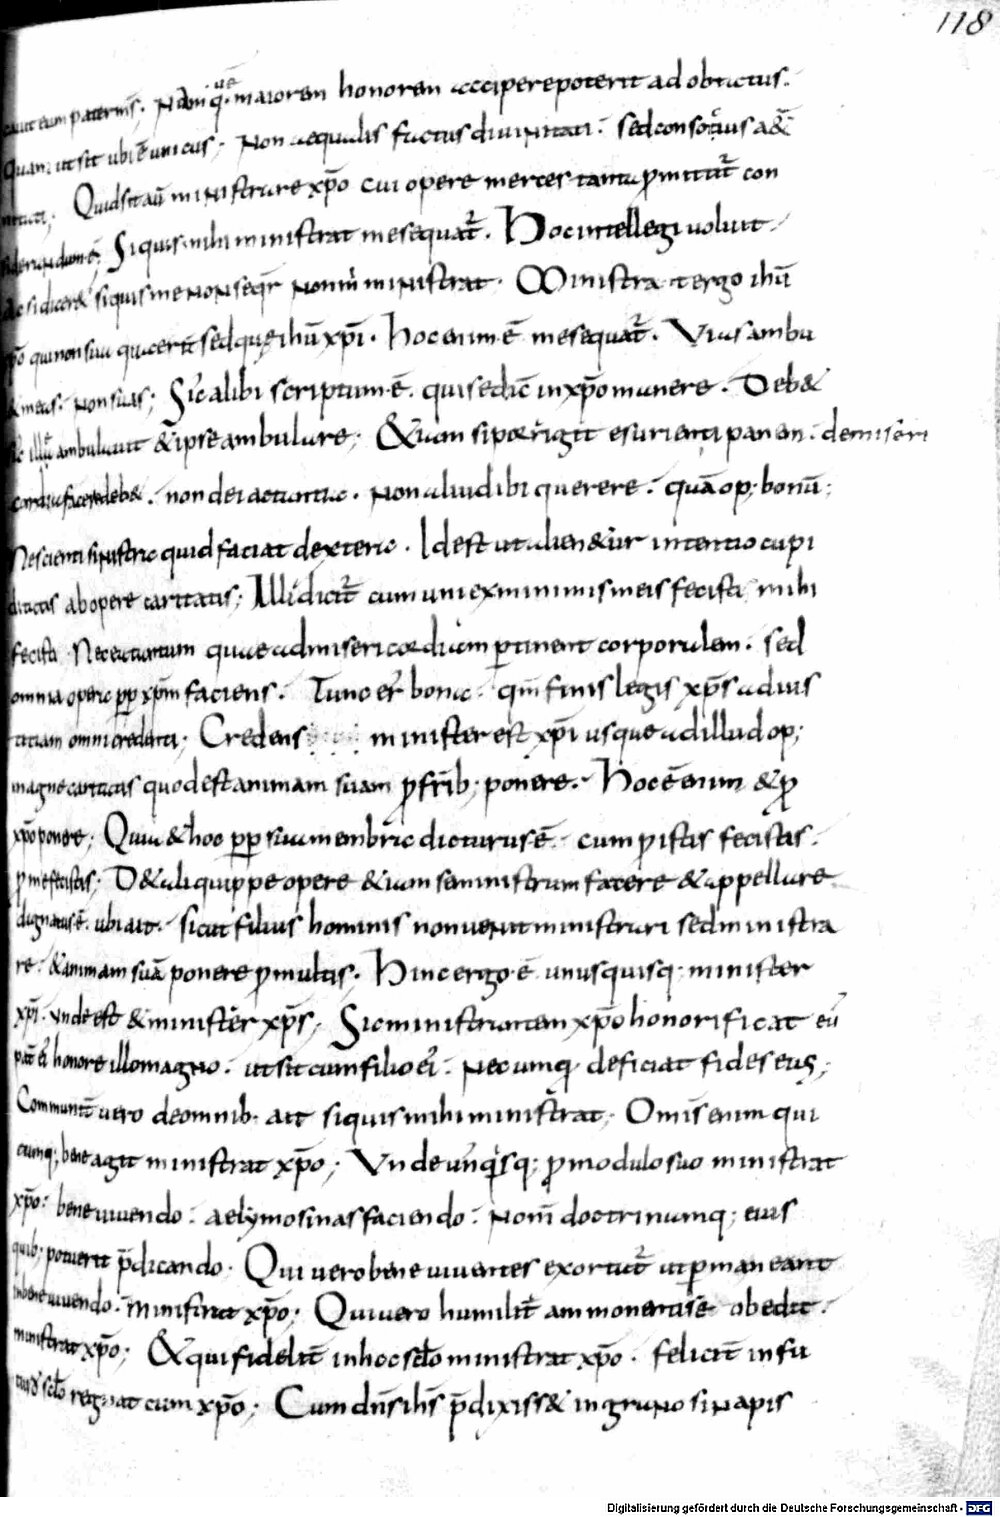 118
eum paternus. Nam qͥ uͤ maiorem honorem acciperepoterit ad obtutus.
quam ut sit ubi ē unicus; Non aequalis factus diuinitati. sed consortiuſ a&̄
Quid sit aū ministrare xp̄o cui opere merces tanta ꝓmittit᷑ con
Siquis mihi ministrat me sequat᷑. Hoc intellegi uoluit.
Ac si dicer& siquis me non seqr̄ non m̄ ministrat. Ministrant ergo ihū
xp̄o qui non sua quaerūt sed que ihū xp̄i. hoc enim ē me sequat᷑. Vias ambu
& meas. non suas; Sic alibi scriptum ē. qui se dic̄ in xp̄o manere. Deb&
sic ille ambulauit & ipse ambulare; & iam si porrigit esurienti panem. de miseri
cordia facere deb&. non de iactantia. Non aliud ibi querere. quā op; bonū;
Nescienti sinistra quid faciat dextera. Id est ut alien&ur intentio cupi
ditatis ab opere caritatis; Illi dicit᷑ cum uni ex minimis meis fecisti mihi
fecisti Nec ea tantum quae ad misericordiam ꝑtinent corporalem. sed
omnia opera ꝓꝑ xp̄m faciens. Tunc er̄ bona. qm̄ finis legis xp̄s ad ius
titiam omni credenti; Credens minister est xp̄i usque ad illud op;
magne caritatis quod est animam suam ꝓ frīb; ponere. Hoc ē enim & ꝓ
xp̄o ponere; Quia & hoc ꝓꝑ sua membra dicturus ē. cum ꝓ istis fecistis.
ꝓ me fecistis; D& ali quippe opere & iam se ministrum facere & appellare
dignatus ē. ubi ait. sicut filius hominis non uenit ministrari sed ministra
re. & animam suā ponere ꝓ multis. Hinc ergo ē unusquisq; minister
xp̄i. unde est & minister xp̄s; Sic ministrantem xp̄o honorificat eū
pat̄ ei᷑ honore illo magno. ut sit cum filio ei᷑. Nec umq̄ deficiat fides eius;
Communit̄ uero de omnib; ait siquis mihi ministrat; Om̄s enim qui
cumq; bene agit ministrat xp̄o; Vnde unqͥsq; ꝓ modulo suo ministrat
xp̄o. bene uiuendo. aelymosinas faciendo. Nom̄ doctrinamq; eius
quib; potuerit p̄dicando. Qui uero bene uiuentes exortat᷑ ut ꝑmaneant
in bene uiuendo. ministrat xp̄o; Qui uero humilit̄ ammonentis ē obedit.
ministrat xp̄o; & qui fidelit̄ in hoc sclo ministrat xp̄o. felicit̄ in fu
turo sclo regnat cum xp̄o; Cum dn̄s ih̄s p̄dixiss& in grano sinapis
Digitalisierung gefördert durch die Deutsche Forschungsgemeinschaft - DFG